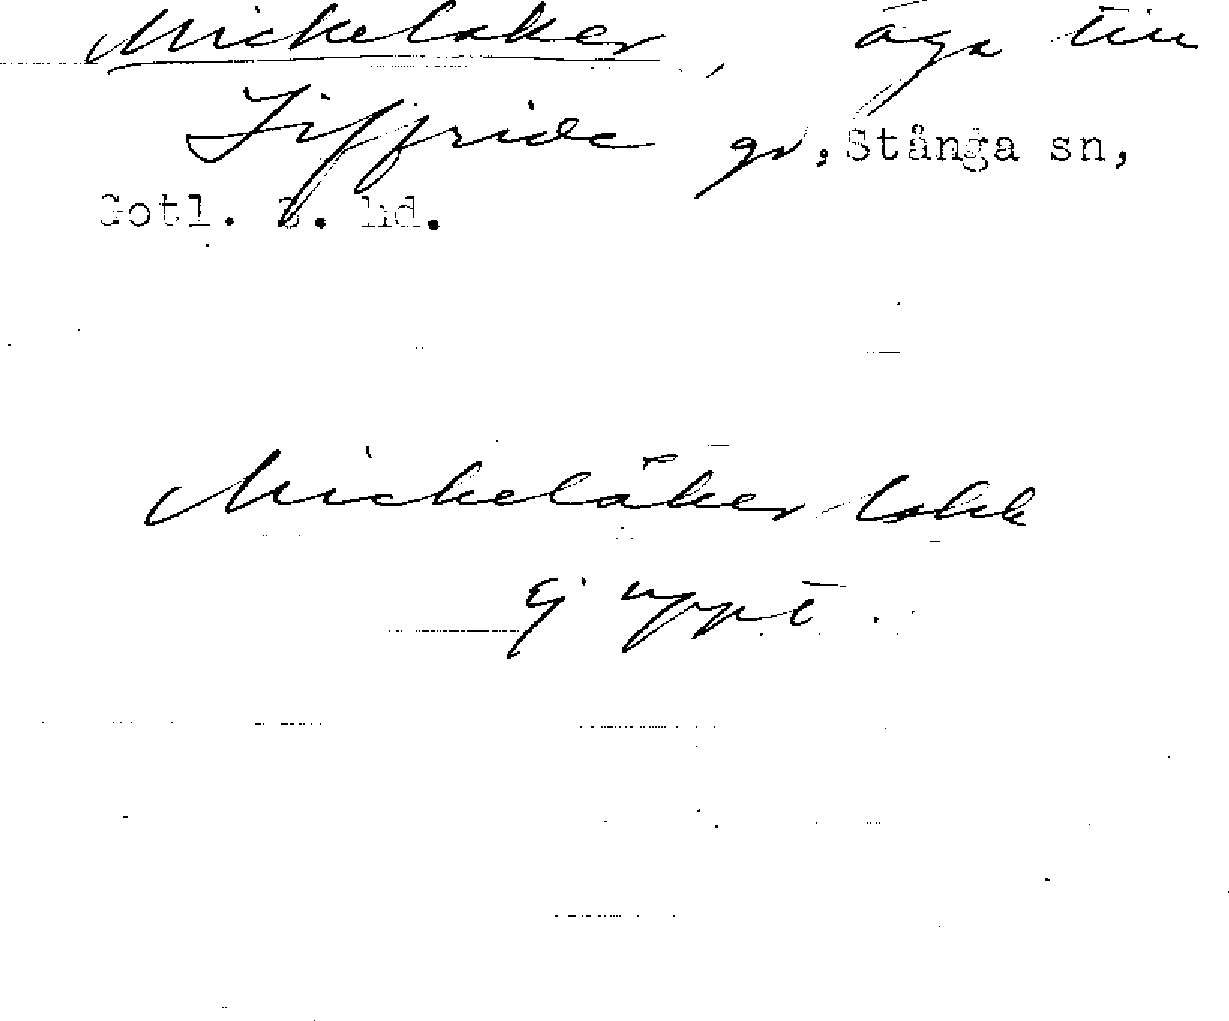 Mickelåker, äga till
Liffride gd, Stånga sn,
Gotl. S. hd.
Mickelåker
ej uppt.